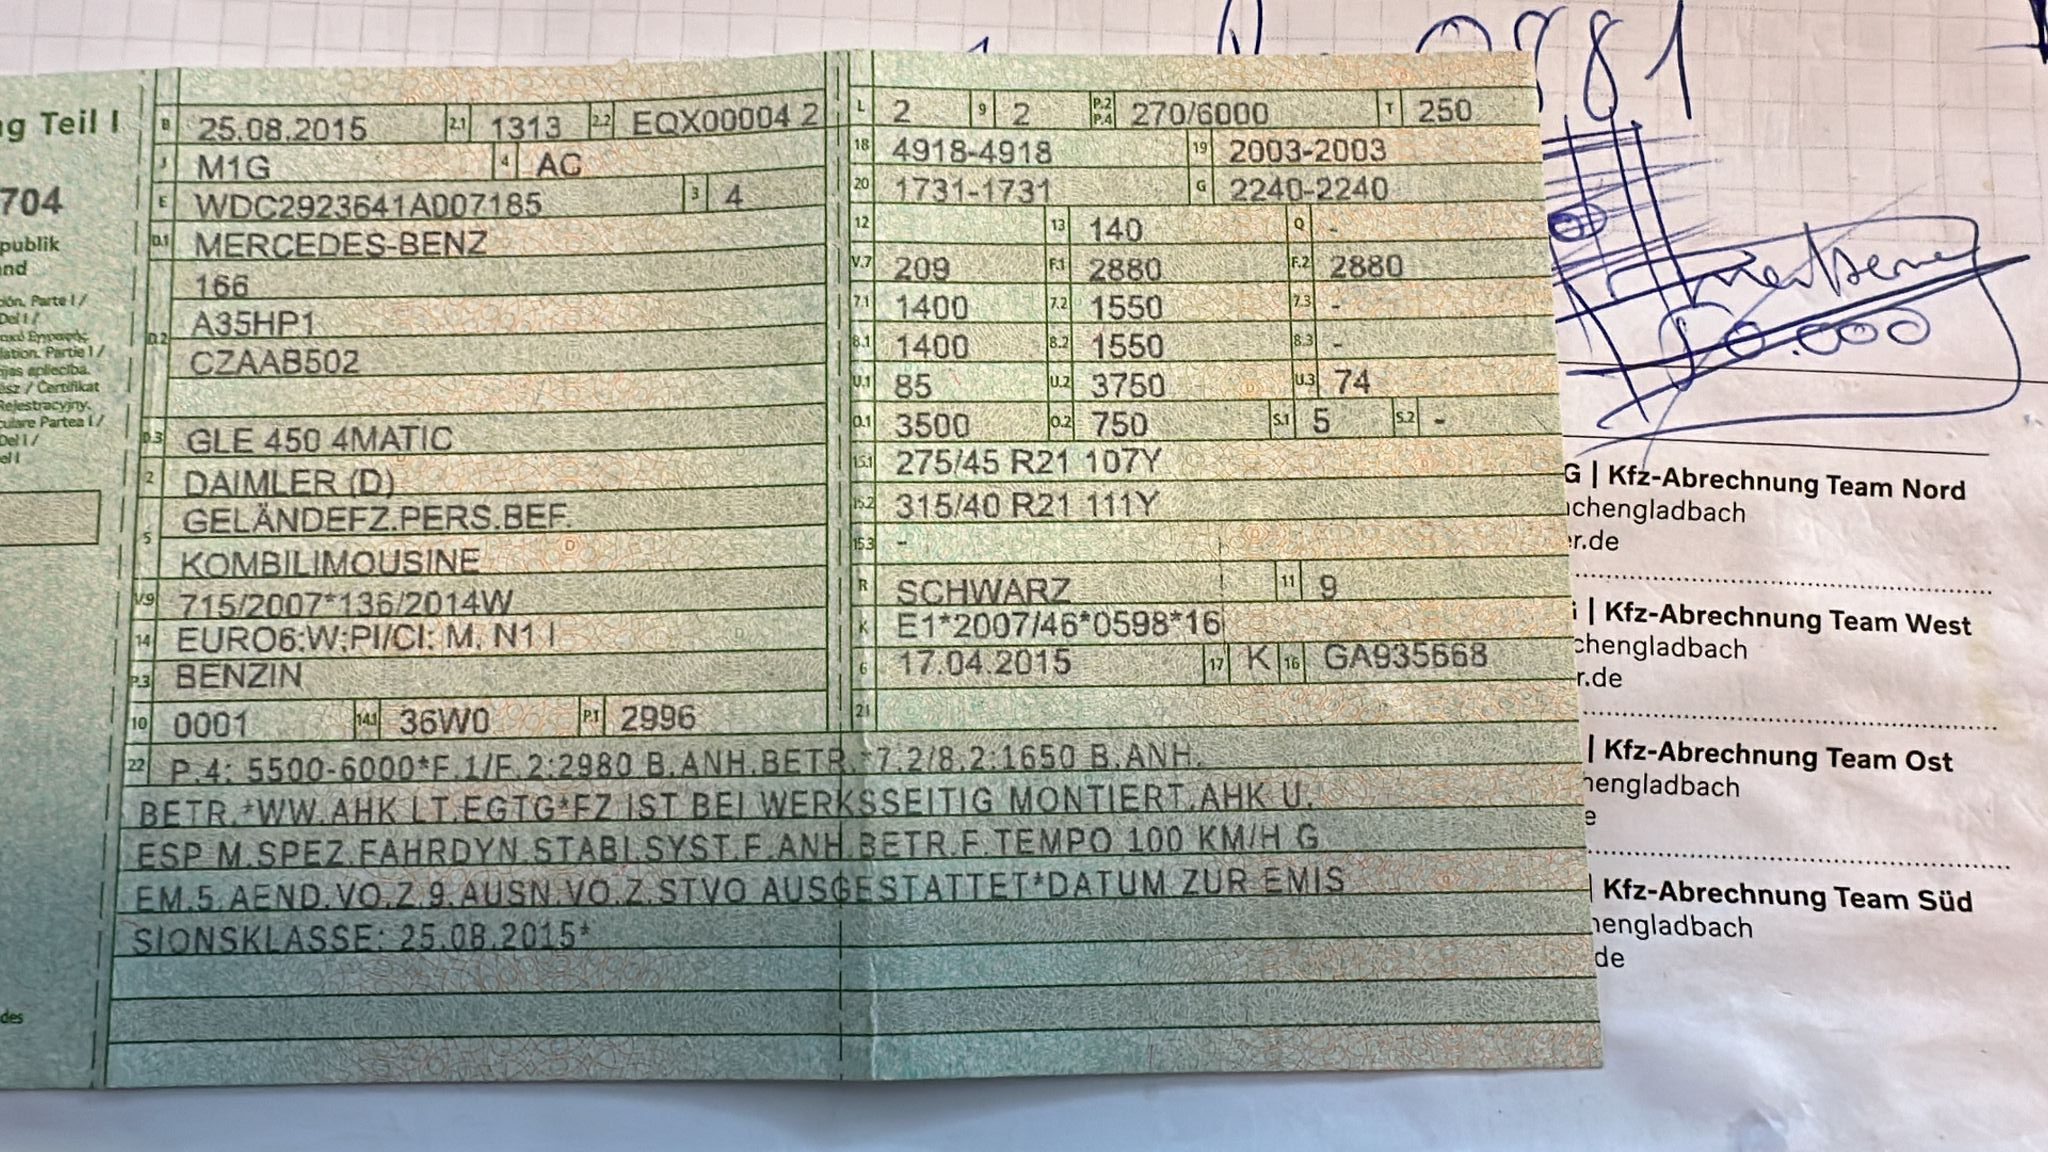 g Teil I
704
publik
nd
ción. Parte I /
Del I /
lation. Partie I /
jas apliecība.
ész / Certifikat
Rejestracyjny.
culare Partea I /
Del I /
el I
des
B 25.08.2015 2.1 1313 2.2 EQX00004 2
J M1G 4 AC
E WDC2923641A007185 3 4
D.1 MERCEDES-BENZ
166
D.2 A35HP1
CZAAB502
D.3 GLE 450 4MATIC
2 DAIMLER (D)
5 GELÄNDEFZ.PERS.BEF.
KOMBILIMOUSINE
V.9 715/2007*136/2014W
14 EURO6;W;PI/CI; M, N1 I
P.3 BENZIN
10 0001 14.1 36W0 P.1 2996
L 2 9 2 P.2 P.4 270/6000 T 250
18 4918-4918 19 2003-2003
20 1731-1731 G 2240-2240
12 13 140 Q -
V.7 209 F.1 2880 F.2 2880
7.1 1400 7.2 1550 7.3 -
8.1 1400 8.2 1550 8.3 -
U.1 85 U.2 3750 U.3 74
O.1 3500 O.2 750 S.1 5 S.2 -
15.1 275/45 R21 107Y
15.2 315/40 R21 111Y
15.3 -
R SCHWARZ 11 9
K E1*2007/46*0598*16
6 17.04.2015 17 K 16 GA935668
21
22 P.4: 5500-6000*F.1/F.2:2980 B.ANH.BETR.*7.2/8.2:1650 B.ANH.
BETR.*WW.AHK LT.EGTG*FZ IST BEI WERKSSEITIG MONTIERT.AHK U.
ESP M.SPEZ.FAHRDYN.STABI.SYST.F.ANH.BETR.F.TEMPO 100 KM/H G
EM.5.AEND.VO.Z.9.AUSN.VO.Z.STVO AUSGESTATTET*DATUM ZUR EMIS
SIONSKLASSE: 25.08.2015*
881
50.000
G | Kfz-Abrechnung Team Nord
nchengladbach
er.de
| Kfz-Abrechnung Team West
chengladbach
r.de
| Kfz-Abrechnung Team Ost
hengladbach
e
| Kfz-Abrechnung Team Süd
nengladbach
de